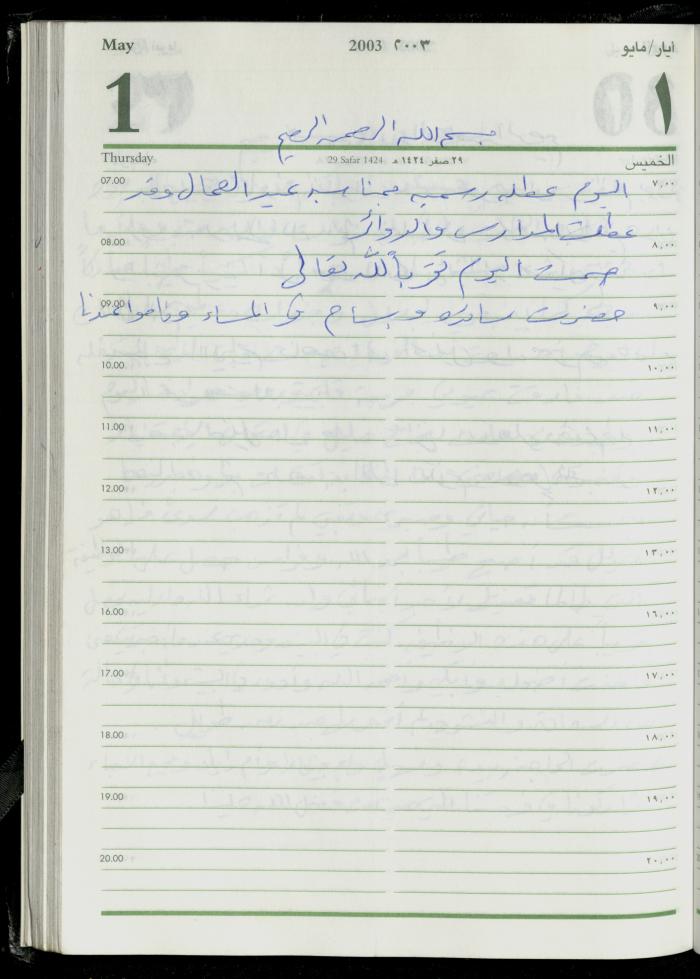 May 2003 ٢٠٠٣ ايار/مايو
1 ١
بسم الله الرحمن الرحيم
Thursday 29 Safar 1424 ٢٩ صفر ١٤٢٤ هـ الخميس
07.00 اليوم عطله رسميه بمناسبه عيد العمال وقد ٧,٠٠
عطلت المدارس والدوائر
08.00 ٨,٠٠
صمت اليوم تقرباً لله تعالى
09.00 حضرت ساره و سماح في المساء وناموا عندنا ٩,٠٠
10.00 ١٠,٠٠
11.00 ١١,٠٠
12.00 ١٢,٠٠
13.00 ١٣,٠٠
16.00 ١٦,٠٠
17.00 ١٧,٠٠
18.00 ١٨,٠٠
19.00 ١٩,٠٠
20.00 ٢٠,٠٠